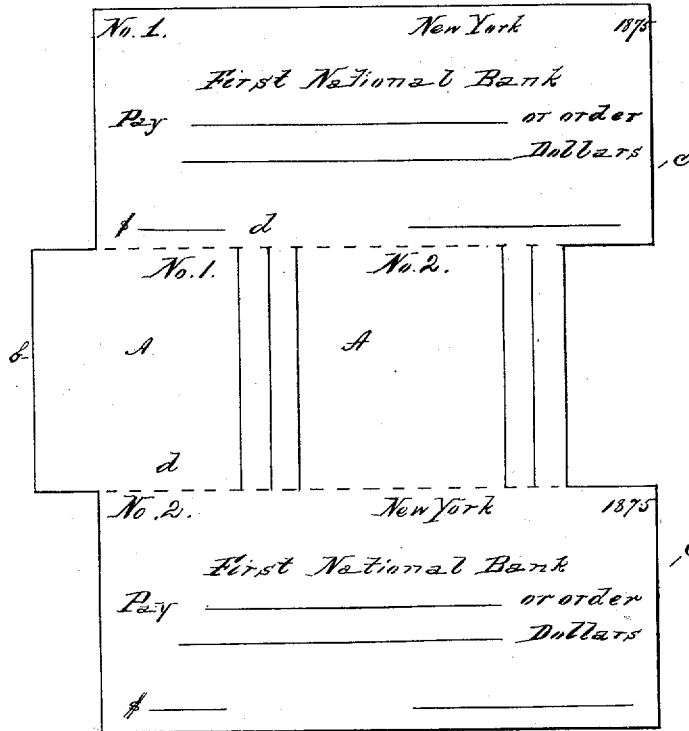 No. 1. New York 1875
First National Bank
Pay or order
Dollars
c
$ d
No. 1. No. 2.
b A A
d
No. 2. New York 1875
c
First National Bank
Pay or order
Dollars
$